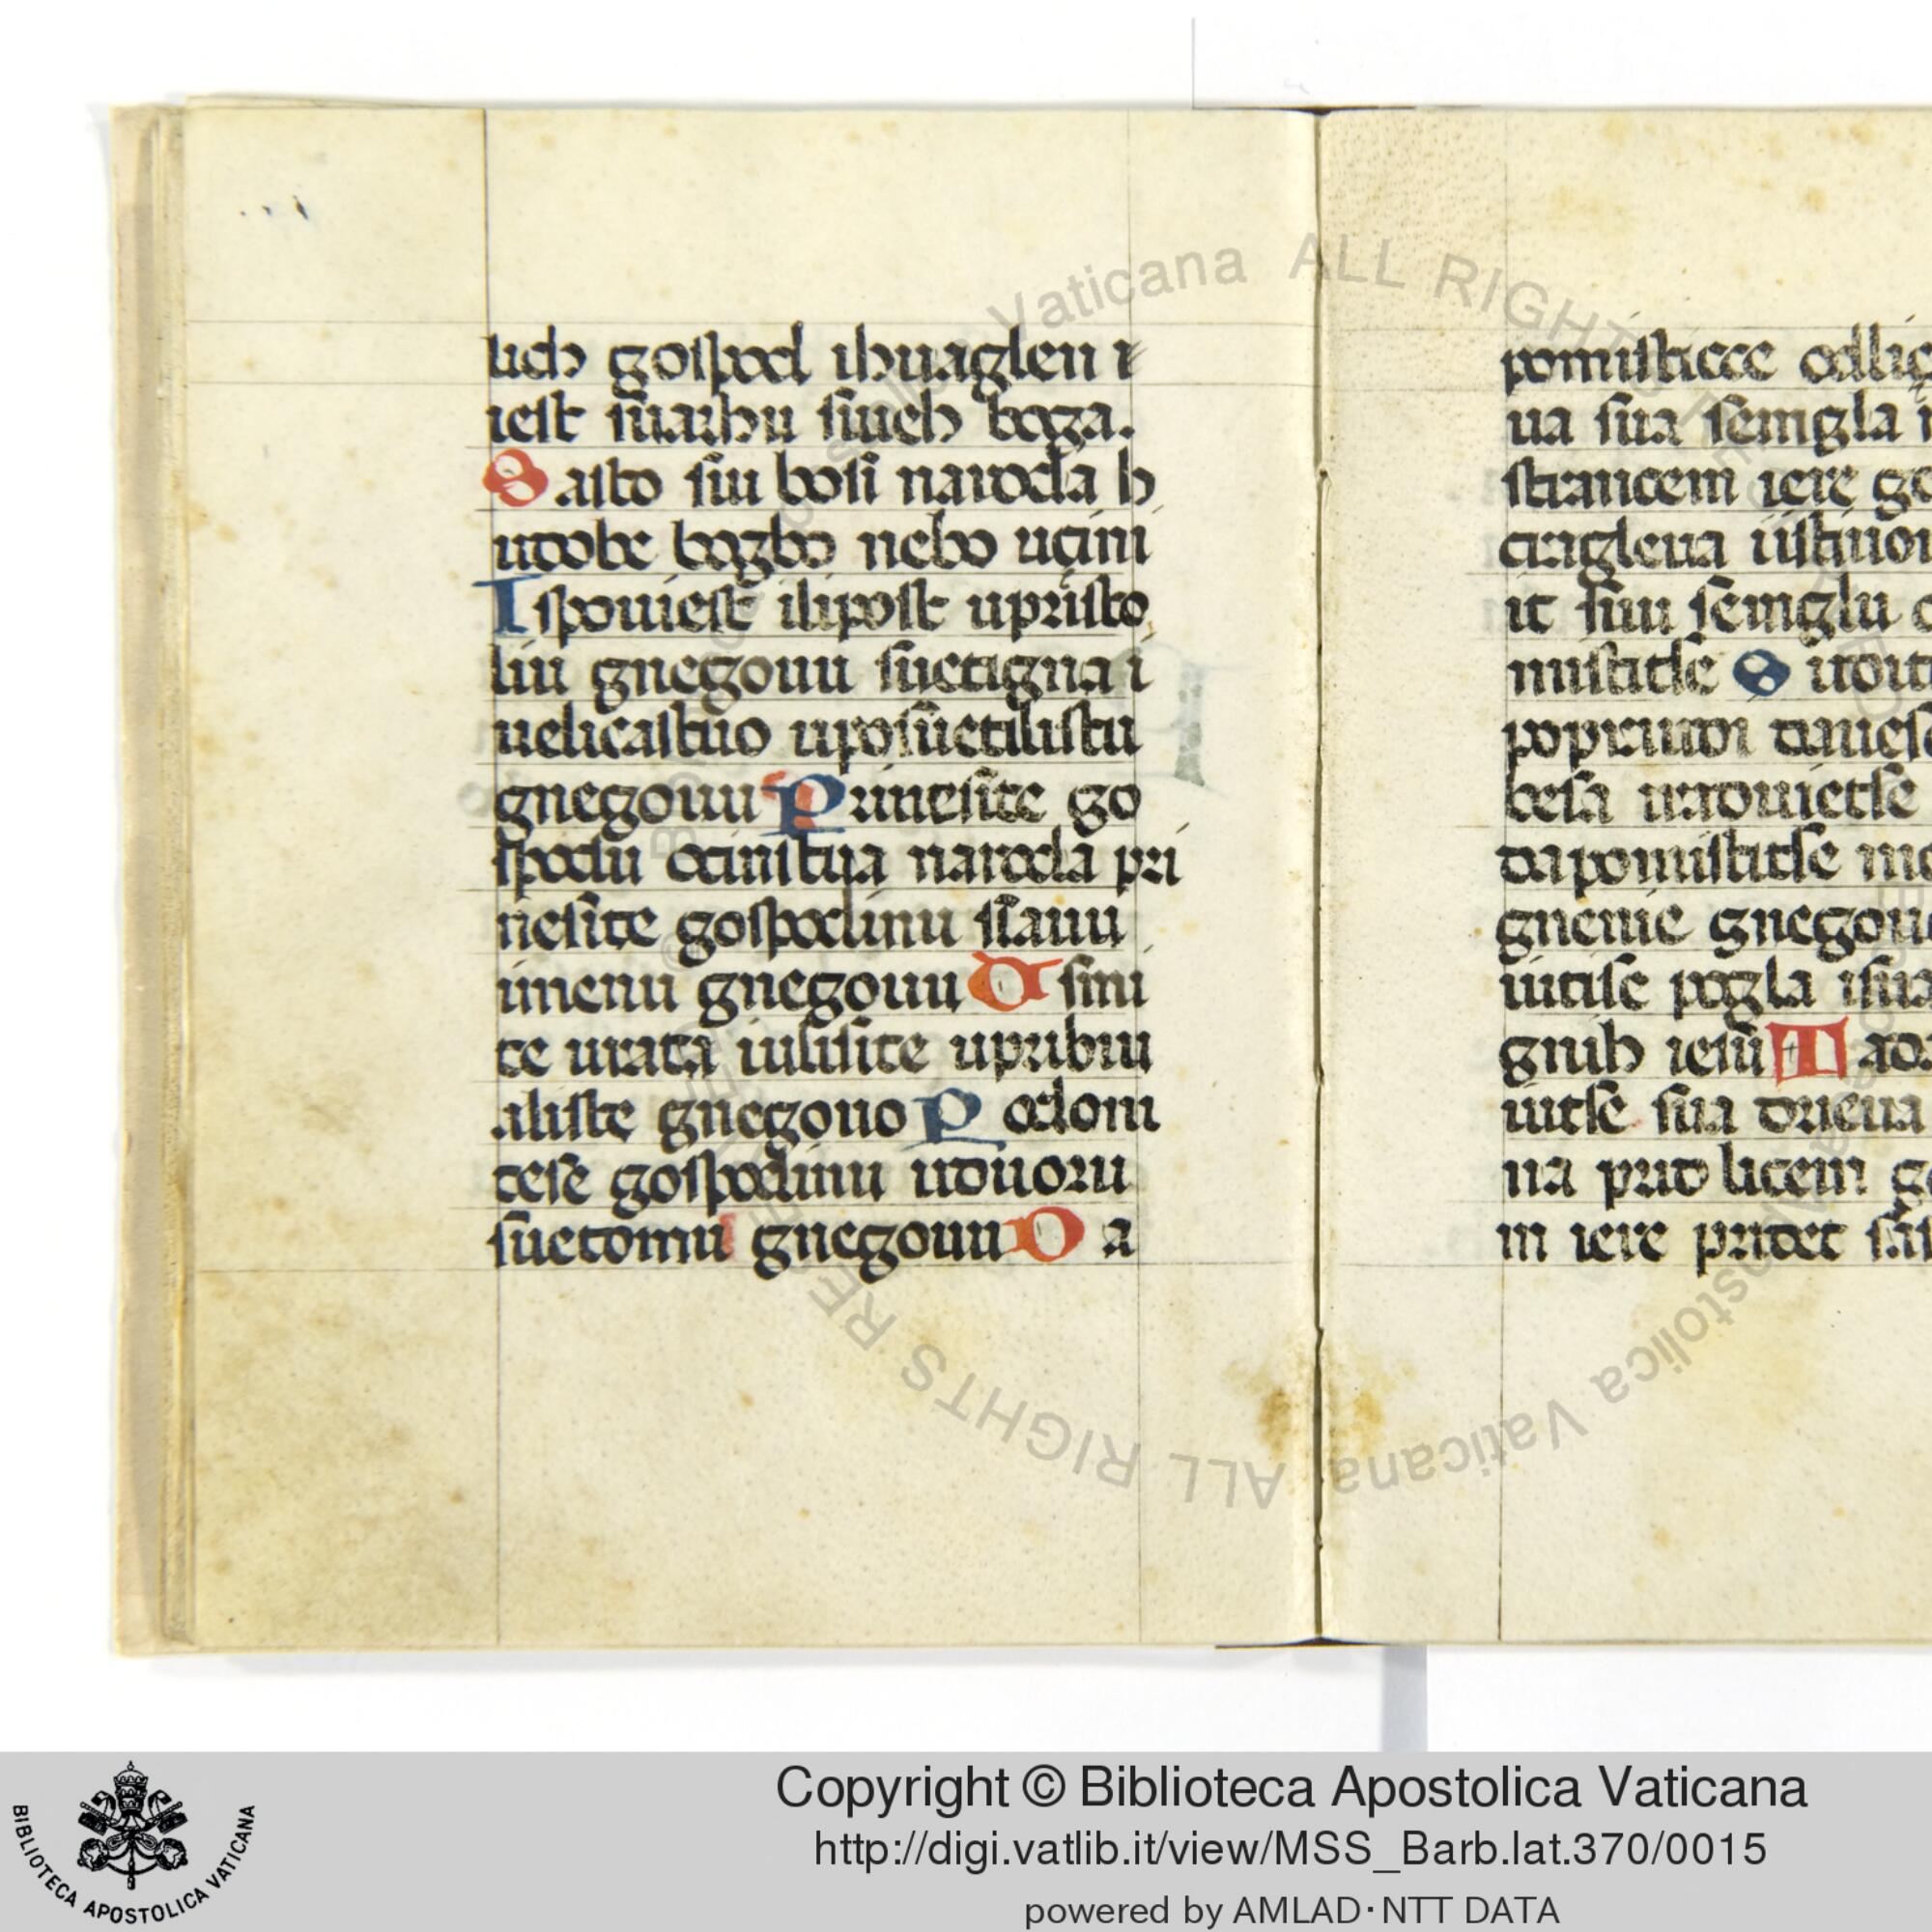 lich gospod ihuaglen i
iest suarhu siueh boga.
Sasto sui bosi naroda h
udobe bogbo nebo ucini
Ispouiest ilipost upristo
liu gnegouu suetigna i
uelicastuo uposuetilistu
gnegouu Prinesite go
spodu ocinstua naroda pri
nesite gospodinu slauu
imenu gnegouu Vsmi
te urata iulisite upribiu
aliste gnegouo Pocloni
tese gospodinu uduoru
suetomu gnegouu Da
pomisticce odlic
ua sua semgla i
strancem iere go
cragleua iistinon
it suu semglu
mistitse
popriuom dauese
besa uradouietse
dapomistitse mo
gnenie gnegou
iuitise pogla isua
gnih iesu Tado
iuitse sua drieua
na prid licem go
in iere pridet sus
Vaticana ALL RIGHTS RE
Apostolica Vaticana ALL RIGHTS RE
BIBLIOTECA APOSTOLICA VATICANA
Copyright © Biblioteca Apostolica Vaticana
http://digi.vatlib.it/view/MSS_Barb.lat.370/0015
powered by AMLAD·NTT DATA